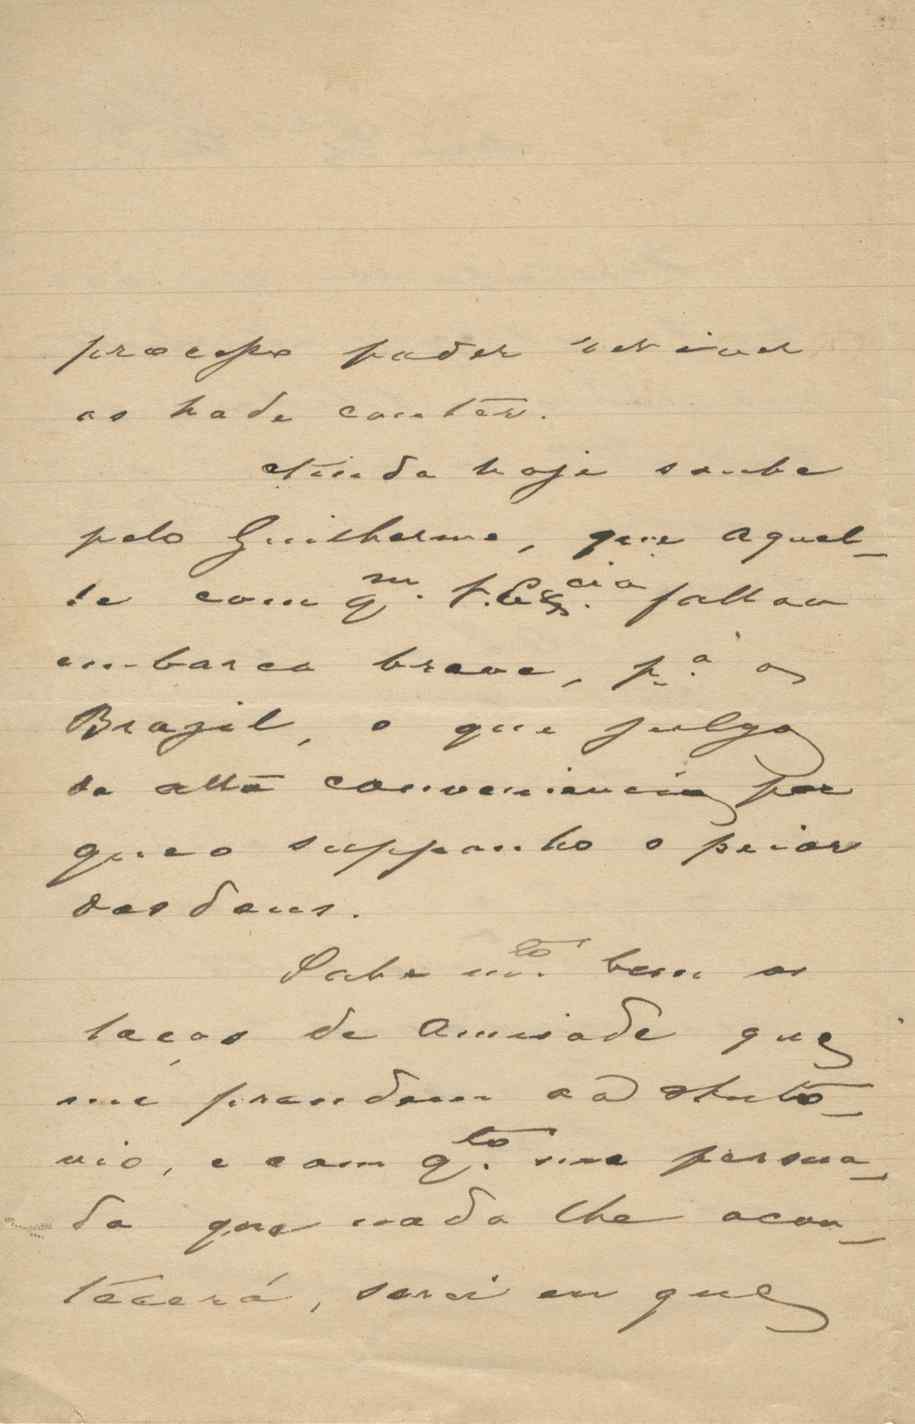 processo poder
os hade conter.
Ainda hoje soube
pelo Guilherme, que aquel-
le com q.m V. Ex.cia fallou
embarca breve, p.a o
Brazil, o que julgo
de alta conveniencia por
que o supponho o peior
dos dous.
Sabe m.to bem os
laços de amisade que
me prendem ao Anto-
nio, e com q.to me persua-
da que nada lhe acon-
tecerá, serei eu que